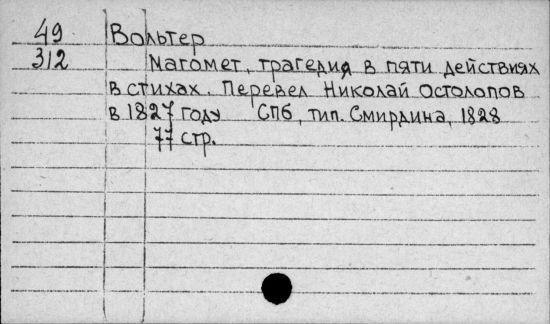 49 Вольтер
312 Магомет, трагедия в пяти действиях
в стихах. Перевел Николай Остолопов
в 1827 году СПб, тип. Смирдина, 1828
77 стр.